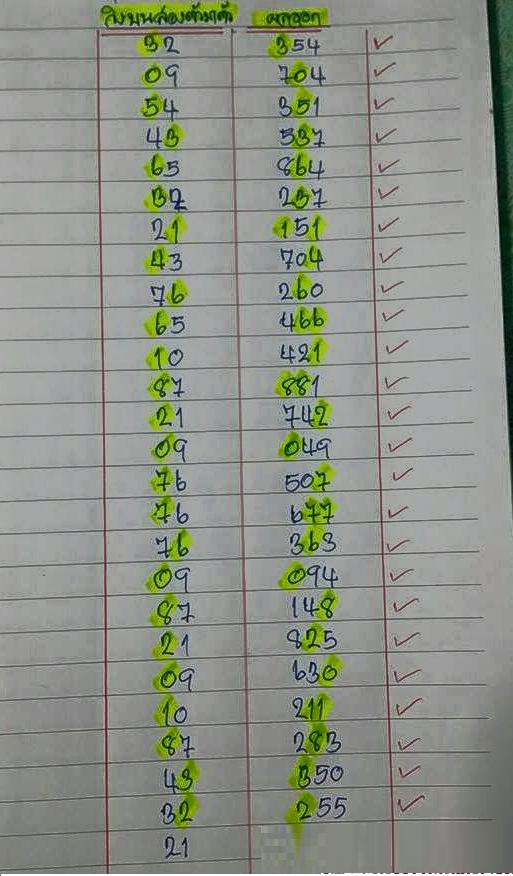 วิ่งบนสองตัวมาตัว ผลออก
32 354
09 704
54 351
43 537
65 864
32 237
21 151
43 704
76 260
65 466
10 421
87 881
21 742
09 049
76 507
76 677
76 363
09 094
87 148
21 825
09 630
10 211
87 283
43 350
32 255
21